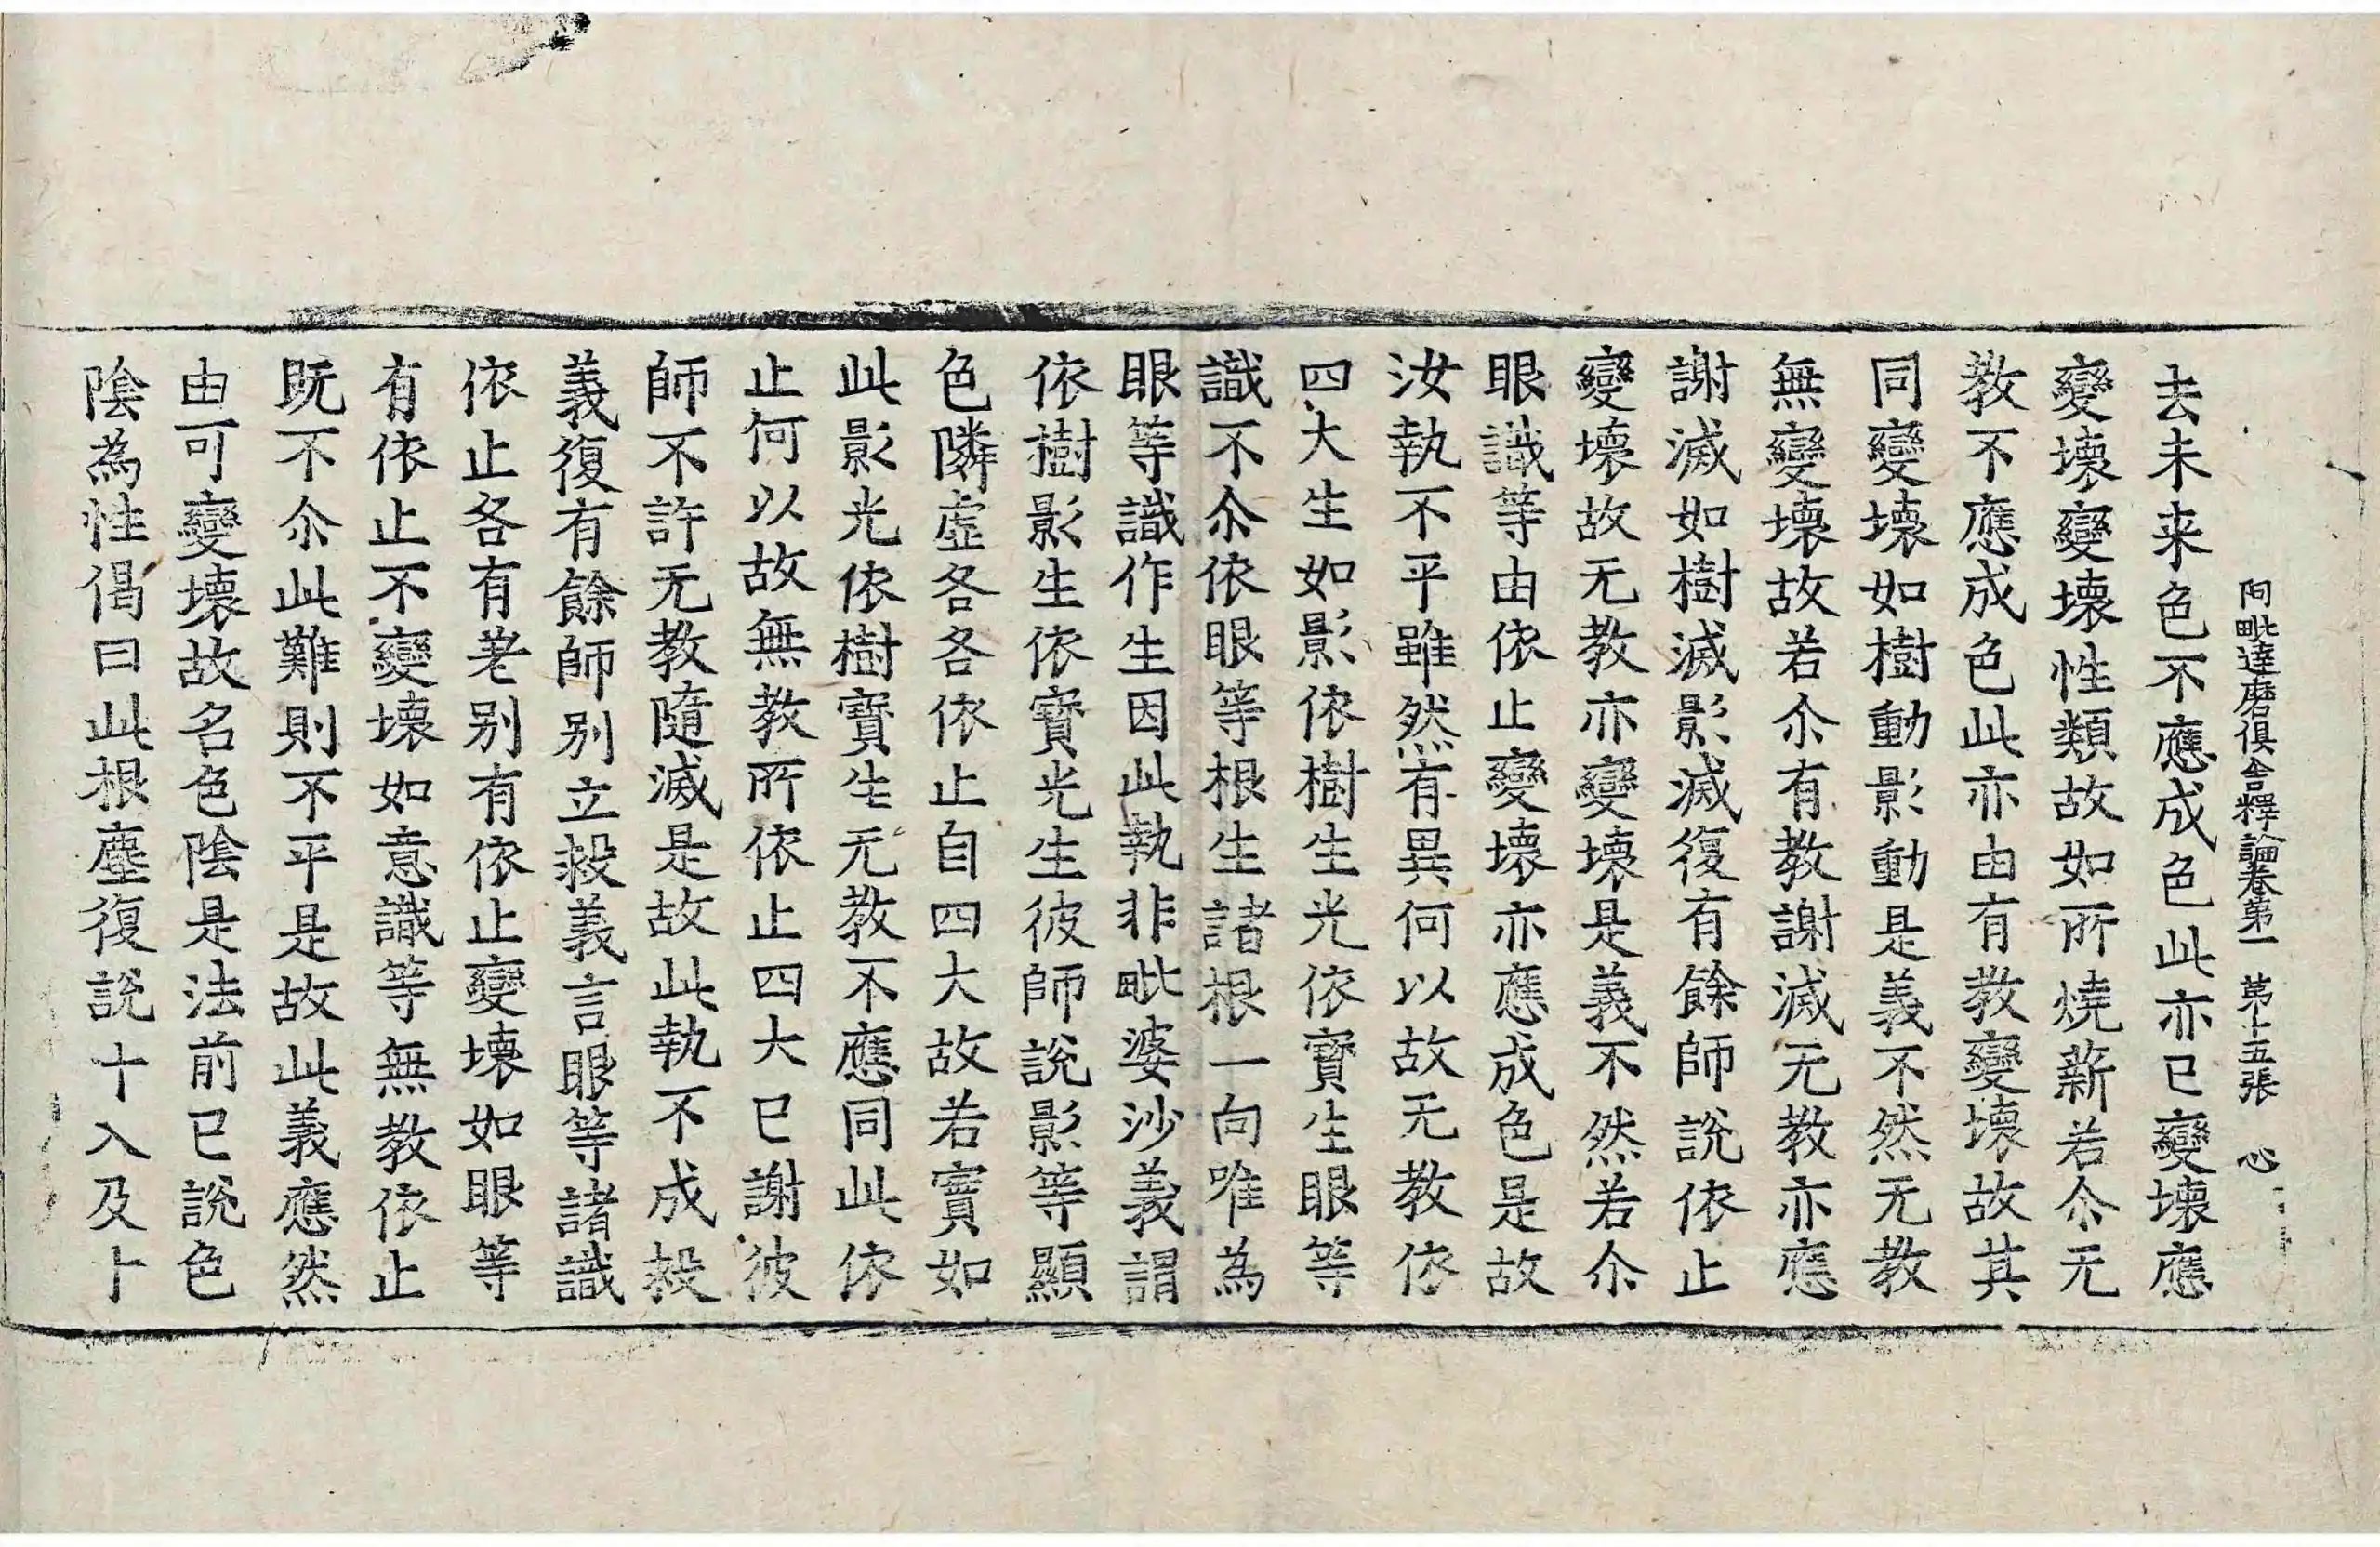 阿毗達磨俱舍釋論卷第一 第十五張 心
去未来色不應成色此亦已變壞應
變壞變壞性類故如所燒薪若尒无
教不應成色此亦由有教變壞故其
同變壞如樹動影動是義不然无教
無變壞故若尒有教謝滅无教亦應
謝滅如樹滅影滅復有餘師說依止
變壞故无教亦變壞是義不然若尒
眼識等由依止變壞亦應成色是故
汝執不平雖然有異何以故无教依
四大生如影依樹生光依寳生眼等
識不尒依眼等根生諸根一向唯為
眼等識作生因此執非毗婆沙義謂
依樹影生依寳光生彼師說影等顯
色隣虛各各依止自四大故若實如
此影光依樹寳生无教不應同此依
止何以故無教所依止四大已謝彼
師不許无教隨滅是故此執不成救
義復有餘師別立救義言眼等諸識
依止各有差別有依止變壞如眼等
有依止不變壞如意識等無教依止
既不尒此難則不平是故此義應然
由可變壞故名色陰是法前已說色
陰為性偈曰此根塵復說十入及十